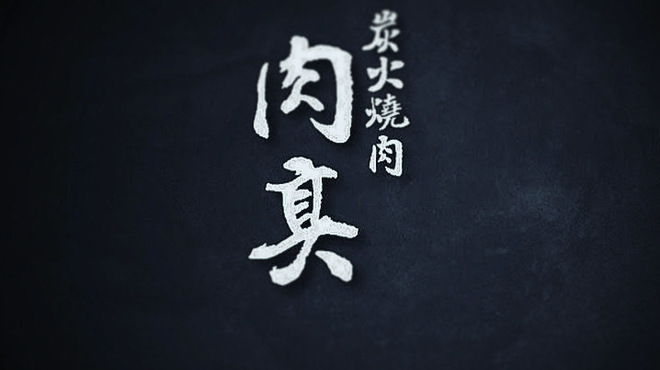 炭火燒肉
肉真